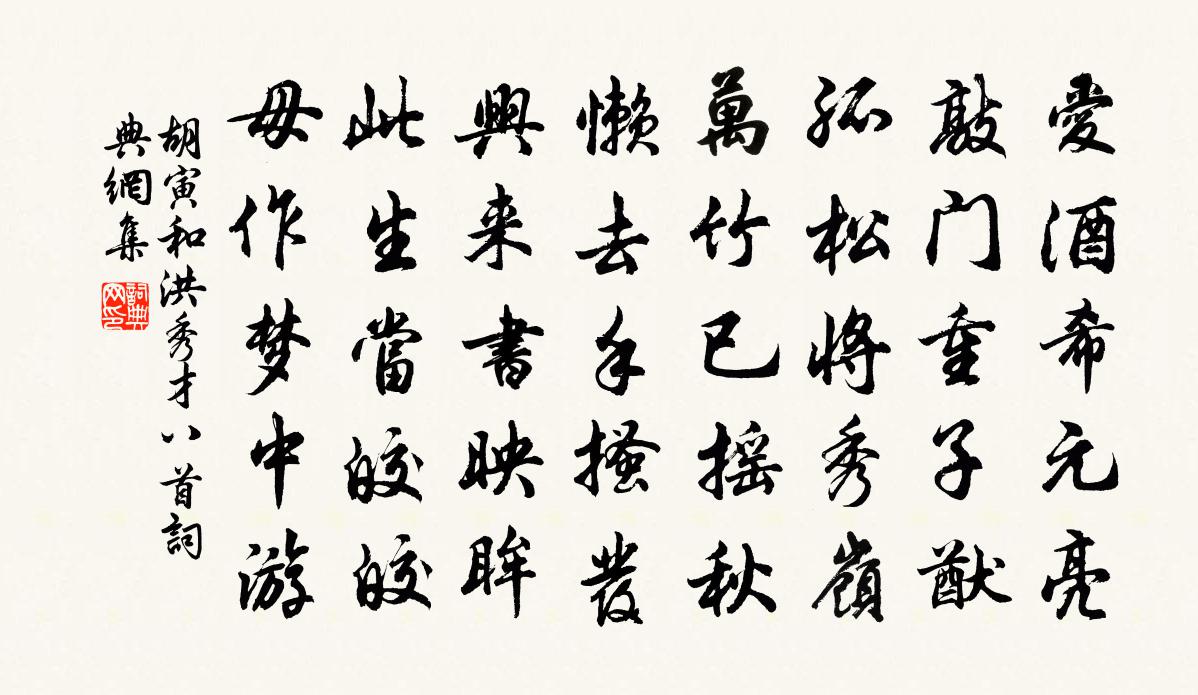 愛酒希元亮
敲门重子猷
孤松將秀嶺
萬竹已摇秋
懶去手搔發
興来書映眸
此生當皎皎
毋作梦中游
胡寅和洪秀才八首詞
典網集
詞典网印